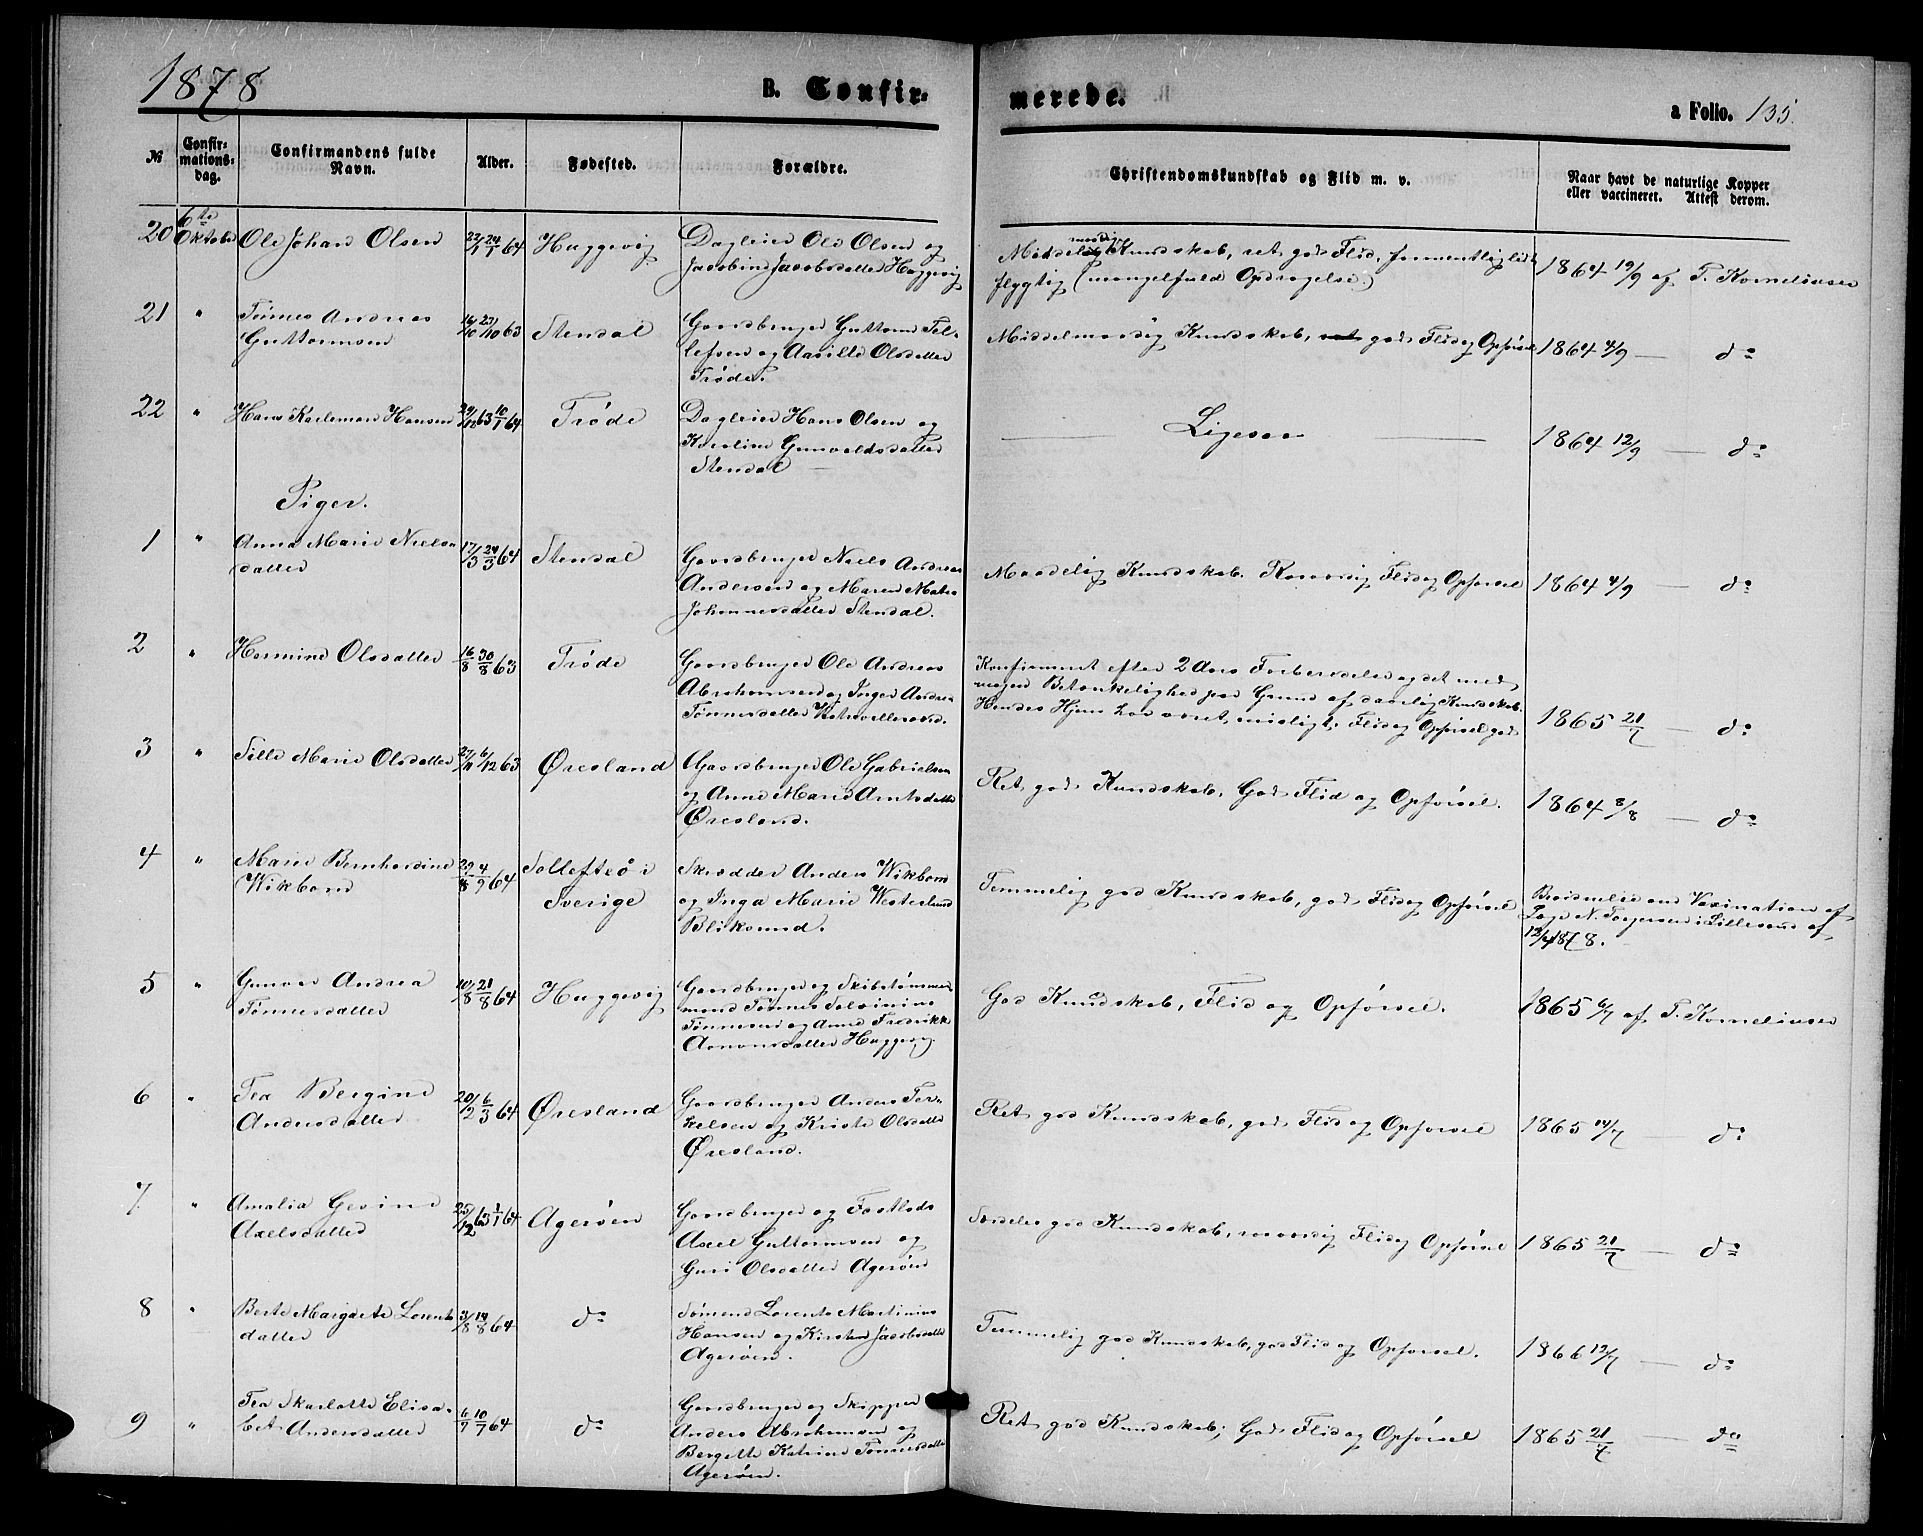 1878
B. Confir-
merede.
a Folio. 135.
№
Confir-
mations-
dag.
Confirmandens fulde
Navn.
Alder.
Fødested.
Forældre.
Christendomskundskab og Flid m. v.
Naar havt de naturlige Kopper
eller vaccineret. Attest derom.
20 6te Oktober Ole Johan Olsen 22/1 24/1 64 Huggevig
Dagleier Ole Olsen og
Jacobine Jacobsdatter Huggevig
Middelmaadig Kundskab, ret god Flid, formentlig lidt
flygtig (mangelfuld Opdragelse.)
1864 19/9 af T. Korneliusen
21 " Tønnes Andreas
Guttormsen
16/10 23/10 63 Stendal
Gaardbruger Guttorm Tel-
lefsen og Aasille Olsdatter
Trøde.
Middelmaadig Kundskab, ret god Flid og Opførsel
1864 4/9 — do
22 " Hans Karlemann Hansen 29/12 63 10/1 64 Trøde
Dagleier Hans Olsen og
Karoline Gunvaldsdatter
Stendal —
Ligesaa
1864 12/9 — do
Piger.
1 " Anna Marie Niels-
datter
17/3 24/3 64 Stendal
Gaardbruger Niels Andreas
Andersen og Maren Matea
Johannesdatter Stendal.
Maadelig Kundskab. Flid og Opførsel
1864 4/9 — do
2 " Hermine Olsdatter 16/8 30/8 63 Trøde
Gaardbruger Ole Andreas
Abrahamsen og Inger Andrea
Tønnesdatter
Konfirmeret efter 2 Aars Forberedelse og det med
megen Betænkelighed paa Grund af daarlig Kundskab.
Hendes Hjem har været misligt. Flid og Opførsel god
1865 21/7 — do
3 " Sille Marie Olsdatter 27/11 6/12 63 Øresland
Gaardbruger Ole Gabrielsen
og Anne Marie Arntsdatter
Øresland.
Ret god Kundskab, God Flid og Opførsel.
1864 8/8 — do
4 " Marie Bernhardine
Wikbom
29/8 4/9 64 Sollefteå i
Sverige
Skrædder Anders Wikbom
og Inga Marie Westerlund
Bliksund.
Temmelig god Kundskab, god Flid og Opførsel
Bevidnelse om Vaxination af
Læge N. Torgersen i Lillesand af
12/4 1878.
5 " Gunvor Andrea
Tønnesdatter
10/8 21/8 64 Huggevig
Gaardbruger og Skibstømmer-
mand Tønnes Salvinius
Tønnesen og Anne Fredrikke
Aanonsdatter Huggevig.
God Kundskab, Flid og Opførsel.
1865 6/7 af T. Korneliusen
6 " Tea Bergine
Andersdatter
20/2 6/3 64 Øresland
Gaardbruger Anders Ter-
kelsen og Kirsti Olsdatter
Øresland.
Ret god Kundskab, god Flid og Opførsel
1865 14/7 — do
7 " Amalia Gesine
Axelsdatter
25/12 63 1/1 64 Agerøen
Gaardbruger og Fastlods
Axel Guttormsen og
Guri Olsdatter Agerøen
Særdeles god Kundskab, maadelig Flid og Opførsel
1865 21/7 — do
8 " Berte Margrete Lorents-
datter
3/8 14/8 64 do
Sømand Lorents Martinius
Hansen og Kirsten Jacobsdatter
Agerøen.
Temmelig god Kundskab, god Flid og Opførsel.
1866 19/7 — do
9 " Tea Skarlotte Elisa-
bet Andersdatter
6/7 10/7 64 do
Gaardbruger og Skipper
Anders Abrahamsen og
Bergette Katrine Tønnesdatter
Agerøen.
Ret god Kundskab; God Flid og Opførsel
1865 21/7 — do